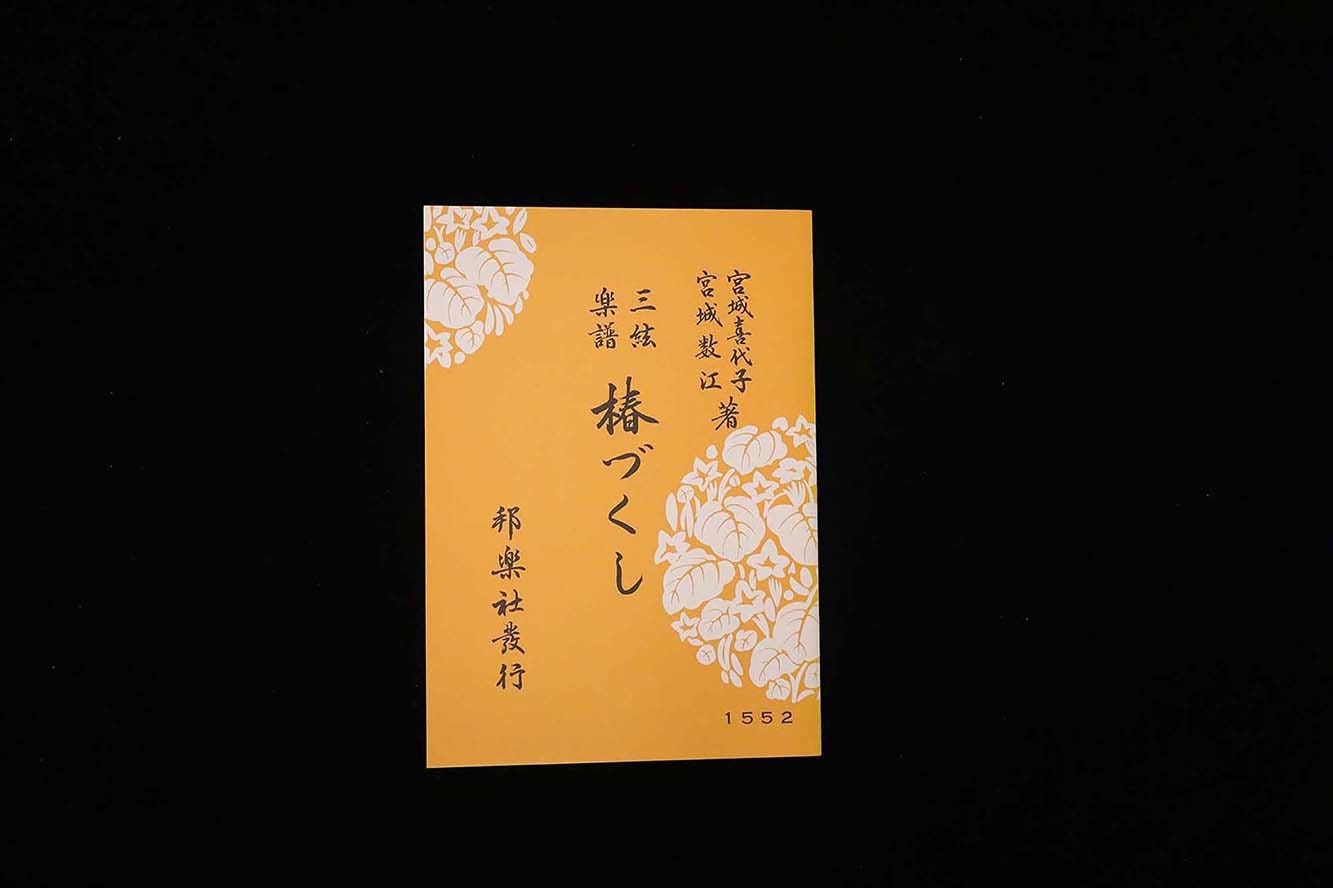 宮城喜代子
宮城数江
著
三絃
楽譜
椿づくし
邦楽社發行
1552